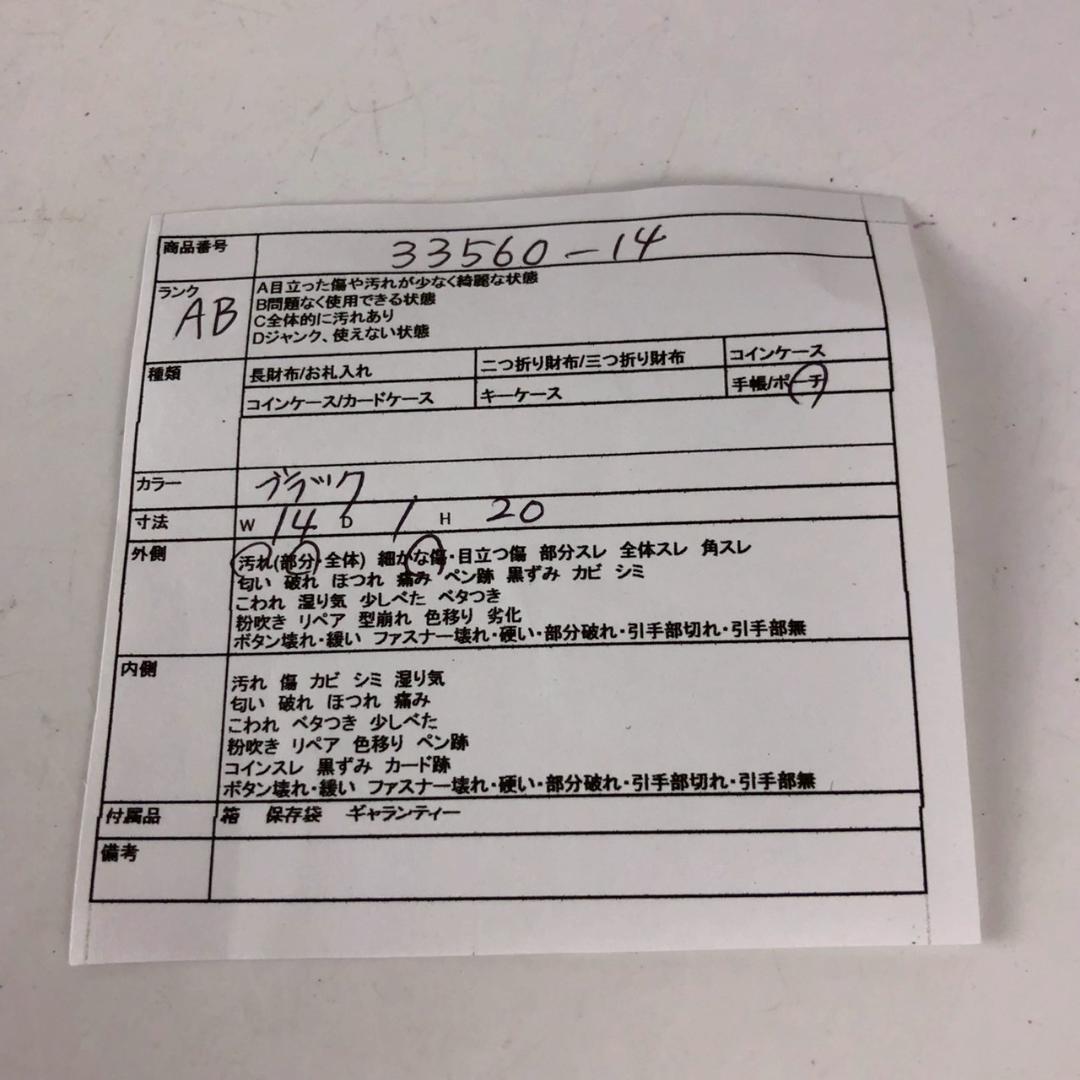 商品番号 33560-14
ランク AB
A目立った傷や汚れが少なく綺麗な状態
B問題なく使用できる状態
C全体的に汚れあり
Dジャンク、使えない状態
種類 長財布/お札入れ 二つ折り財布/三つ折り財布 コインケース
コインケース/カードケース キーケース 手帳/ポーチ
カラー ブラック
寸法 W 14 D 1 H 20
外側 汚れ(部分・全体) 細かな傷・目立つ傷 部分スレ 全体スレ 角スレ
匂い 破れ ほつれ 痛み ペン跡 黒ずみ カビ シミ
こわれ 湿り気 少しべた ベタつき
粉吹き リペア 型崩れ 色移り 劣化
ボタン壊れ・緩い ファスナー壊れ・硬い・部分破れ・引手部切れ・引手部無
内側 汚れ 傷 カビ シミ 湿り気
匂い 破れ ほつれ 痛み
こわれ ベタつき 少しべた
粉吹き リペア 色移り ペン跡
コインスレ 黒ずみ カード跡
ボタン壊れ・緩い ファスナー壊れ・硬い・部分破れ・引手部切れ・引手部無
付属品 箱 保存袋 ギャランティー
備考